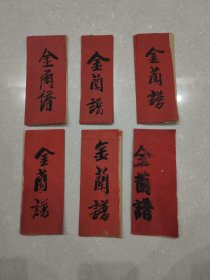 金蘭譜
金蘭譜
金蘭譜
金蘭譜
金蘭譜
金蘭譜